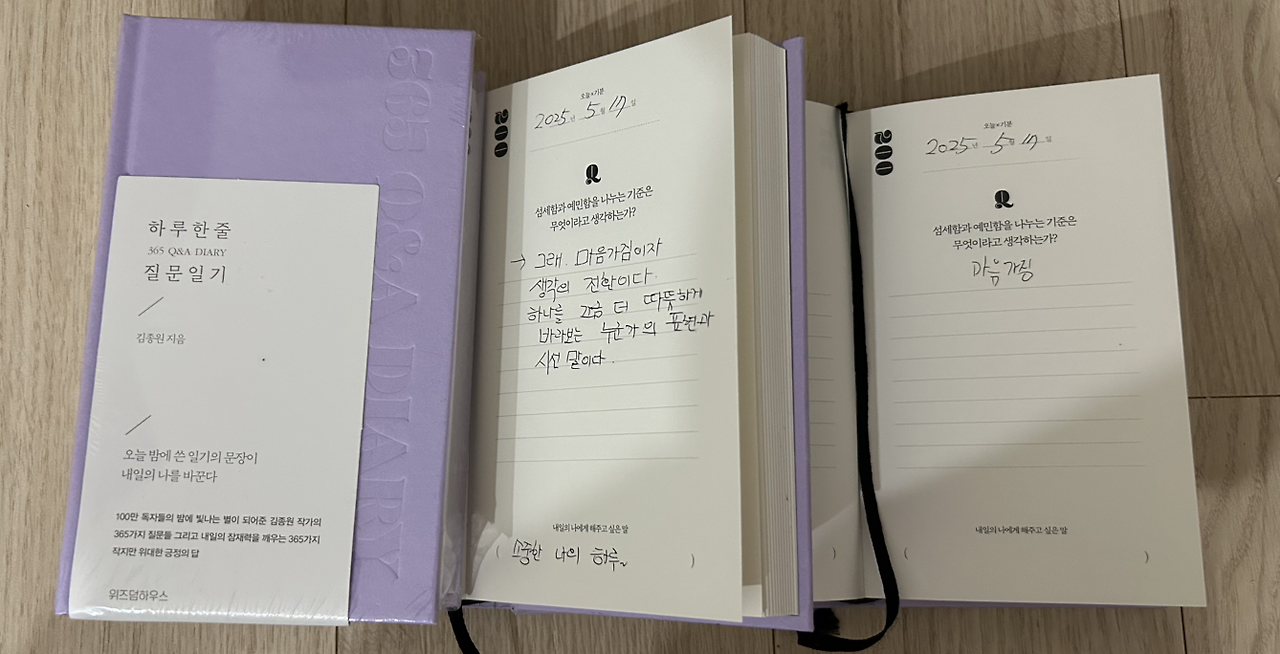 365 Q&A DIARY
하루한줄
365 Q&A DIARY
질문일기
김종원 지음
오늘 밤에 쓴 일기의 문장이
내일의 나를 바꾼다
100만 독자들의 밤에 빛나는 별이 되어준 김종원 작가의
365가지 질문들 그리고 내일의 잠재력을 깨우는 365가지
작지만 위대한 긍정의 답
위즈덤하우스
200
오늘×기분
2025년 5월 17일
Q
섬세함과 예민함을 나누는 기준은
무엇이라고 생각하는가?
→ 그래. 마음가짐이자
생각의 전환이다.
하나를 조금 더 따뜻하게
바라보는 누군가의 표현과
시선 말이다.
내일의 나에게 해주고 싶은 말
( 소중한 나의 하루~ )
200
오늘×기분
2025년 5월 17일
Q
섬세함과 예민함을 나누는 기준은
무엇이라고 생각하는가?
마음가짐
내일의 나에게 해주고 싶은 말
( )